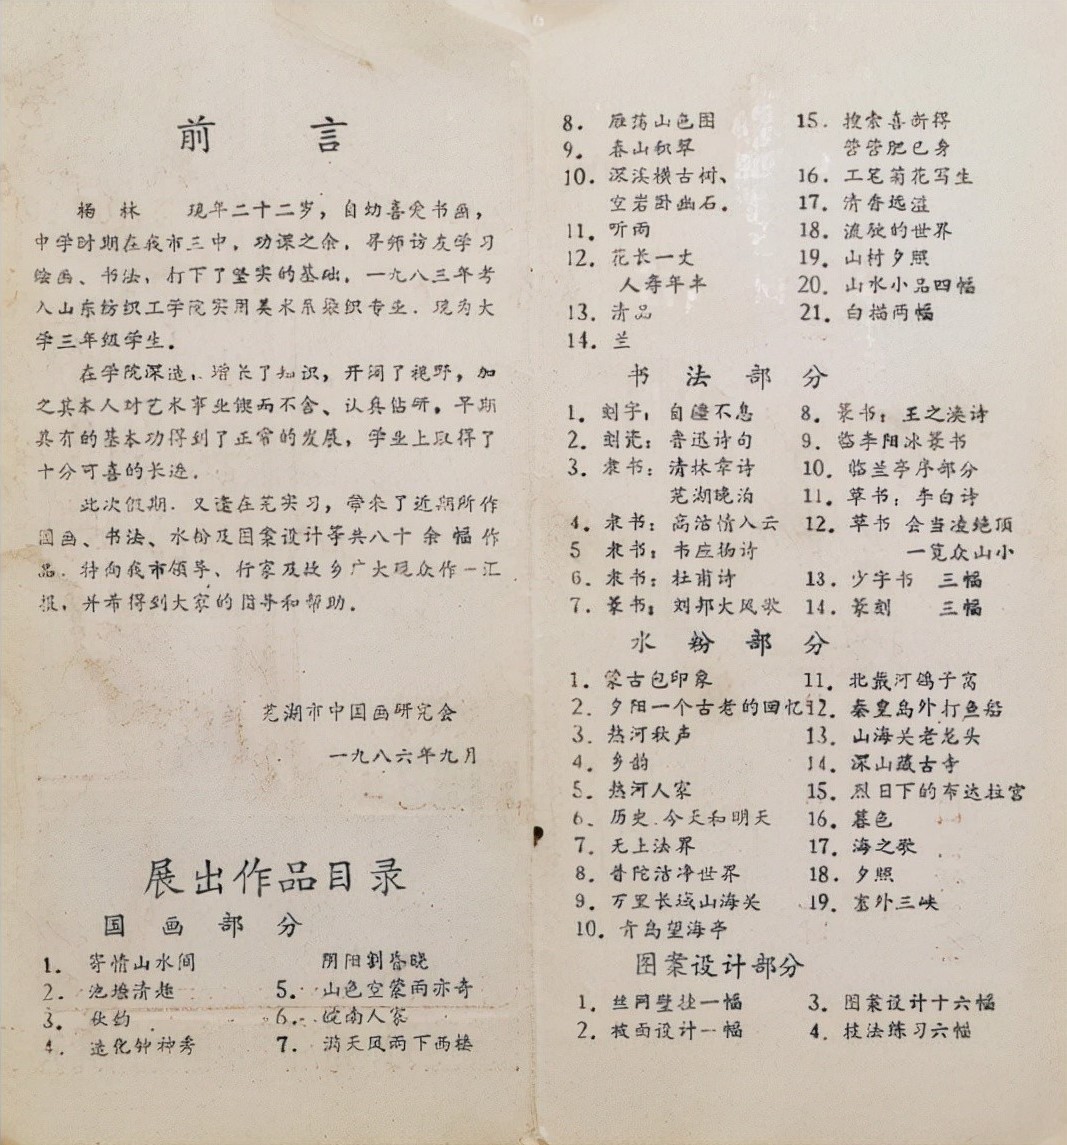 前 言
杨 林 现年二十二岁，自幼喜爱书画，
中学时期在我市三中，功课之余，寻师访友学习
绘画、书法，打下了坚实的基础，一九八三年考
入山东纺织工学院实用美术系染织专业．现为大
学三年级学生。
在学院深造，增长了知识，开阔了视野，加
之其本人对艺术事业锲而不舍、认真钻研，早期
具有的基本功得到了正常的发展，学业上取得了
十分可喜的长进．
此次假期．又逢在芜实习，带来了近期所作
国画、书法、水粉及图案设计等共八十余幅作
品．特向我市领导、行家及故乡广大观众作一汇
报，并希得到大家的指导和帮助．
芜湖市中国画研究会
一九八六年九月
展出作品目录
国 画 部 分
1. 寄情山水间
2. 池塘清趣
3. 秋韵
4. 造化钟神秀
阴阳割昏晓
5. 山色空蒙雨亦奇
6. 皖南人家
7. 满天风雨下西楼
8. 雁荡山色图
9. 春山积翠
10. 深溪横古树、
空岩卧幽石．
11. 听雨
12. 花长一丈
人寿年丰
13. 清品
14. 兰
15. 搜索喜新得
管管肥己身
16. 工笔菊花写生
17. 清香远溢
18. 流动的世界
19. 山村夕照
20. 山水小品四幅
21. 白描两幅
书 法 部 分
1. 刻字：自强不息
2. 刻瓷：鲁迅诗句
3. 隶书：清林章诗
芜湖晚泊
4. 隶书：高洁情入云
5 隶书：韦应物诗
6. 隶书：杜甫诗
7. 篆书：刘邦大风歌
8. 篆书：王之涣诗
9. 临李阳冰篆书
10. 临兰亭序部分
11. 草书：李白诗
12. 草书 会当凌绝顶
一览众山小
13. 少字书 三幅
14. 篆刻 三幅
水 粉 部 分
1. 蒙古包印象
2. 夕阳一个古老的回忆
3. 热河秋声
4. 乡韵
5. 热河人家
6. 历史．今天和明天
7. 无上法界
8. 普陀洁净世界
9. 万里长城山海关
10. 青岛望海亭
11. 北戴河鸽子窝
12. 秦皇岛外打鱼船
13. 山海关老龙头
14. 深山藏古寺
15. 烈日下的布达拉宫
16. 暮色
17. 海之歌
18. 夕照
19. 塞外三峡
图案设计部分
1. 丝网壁挂一幅
2. 被面设计一幅
3. 图案设计十六幅
4. 技法练习六幅